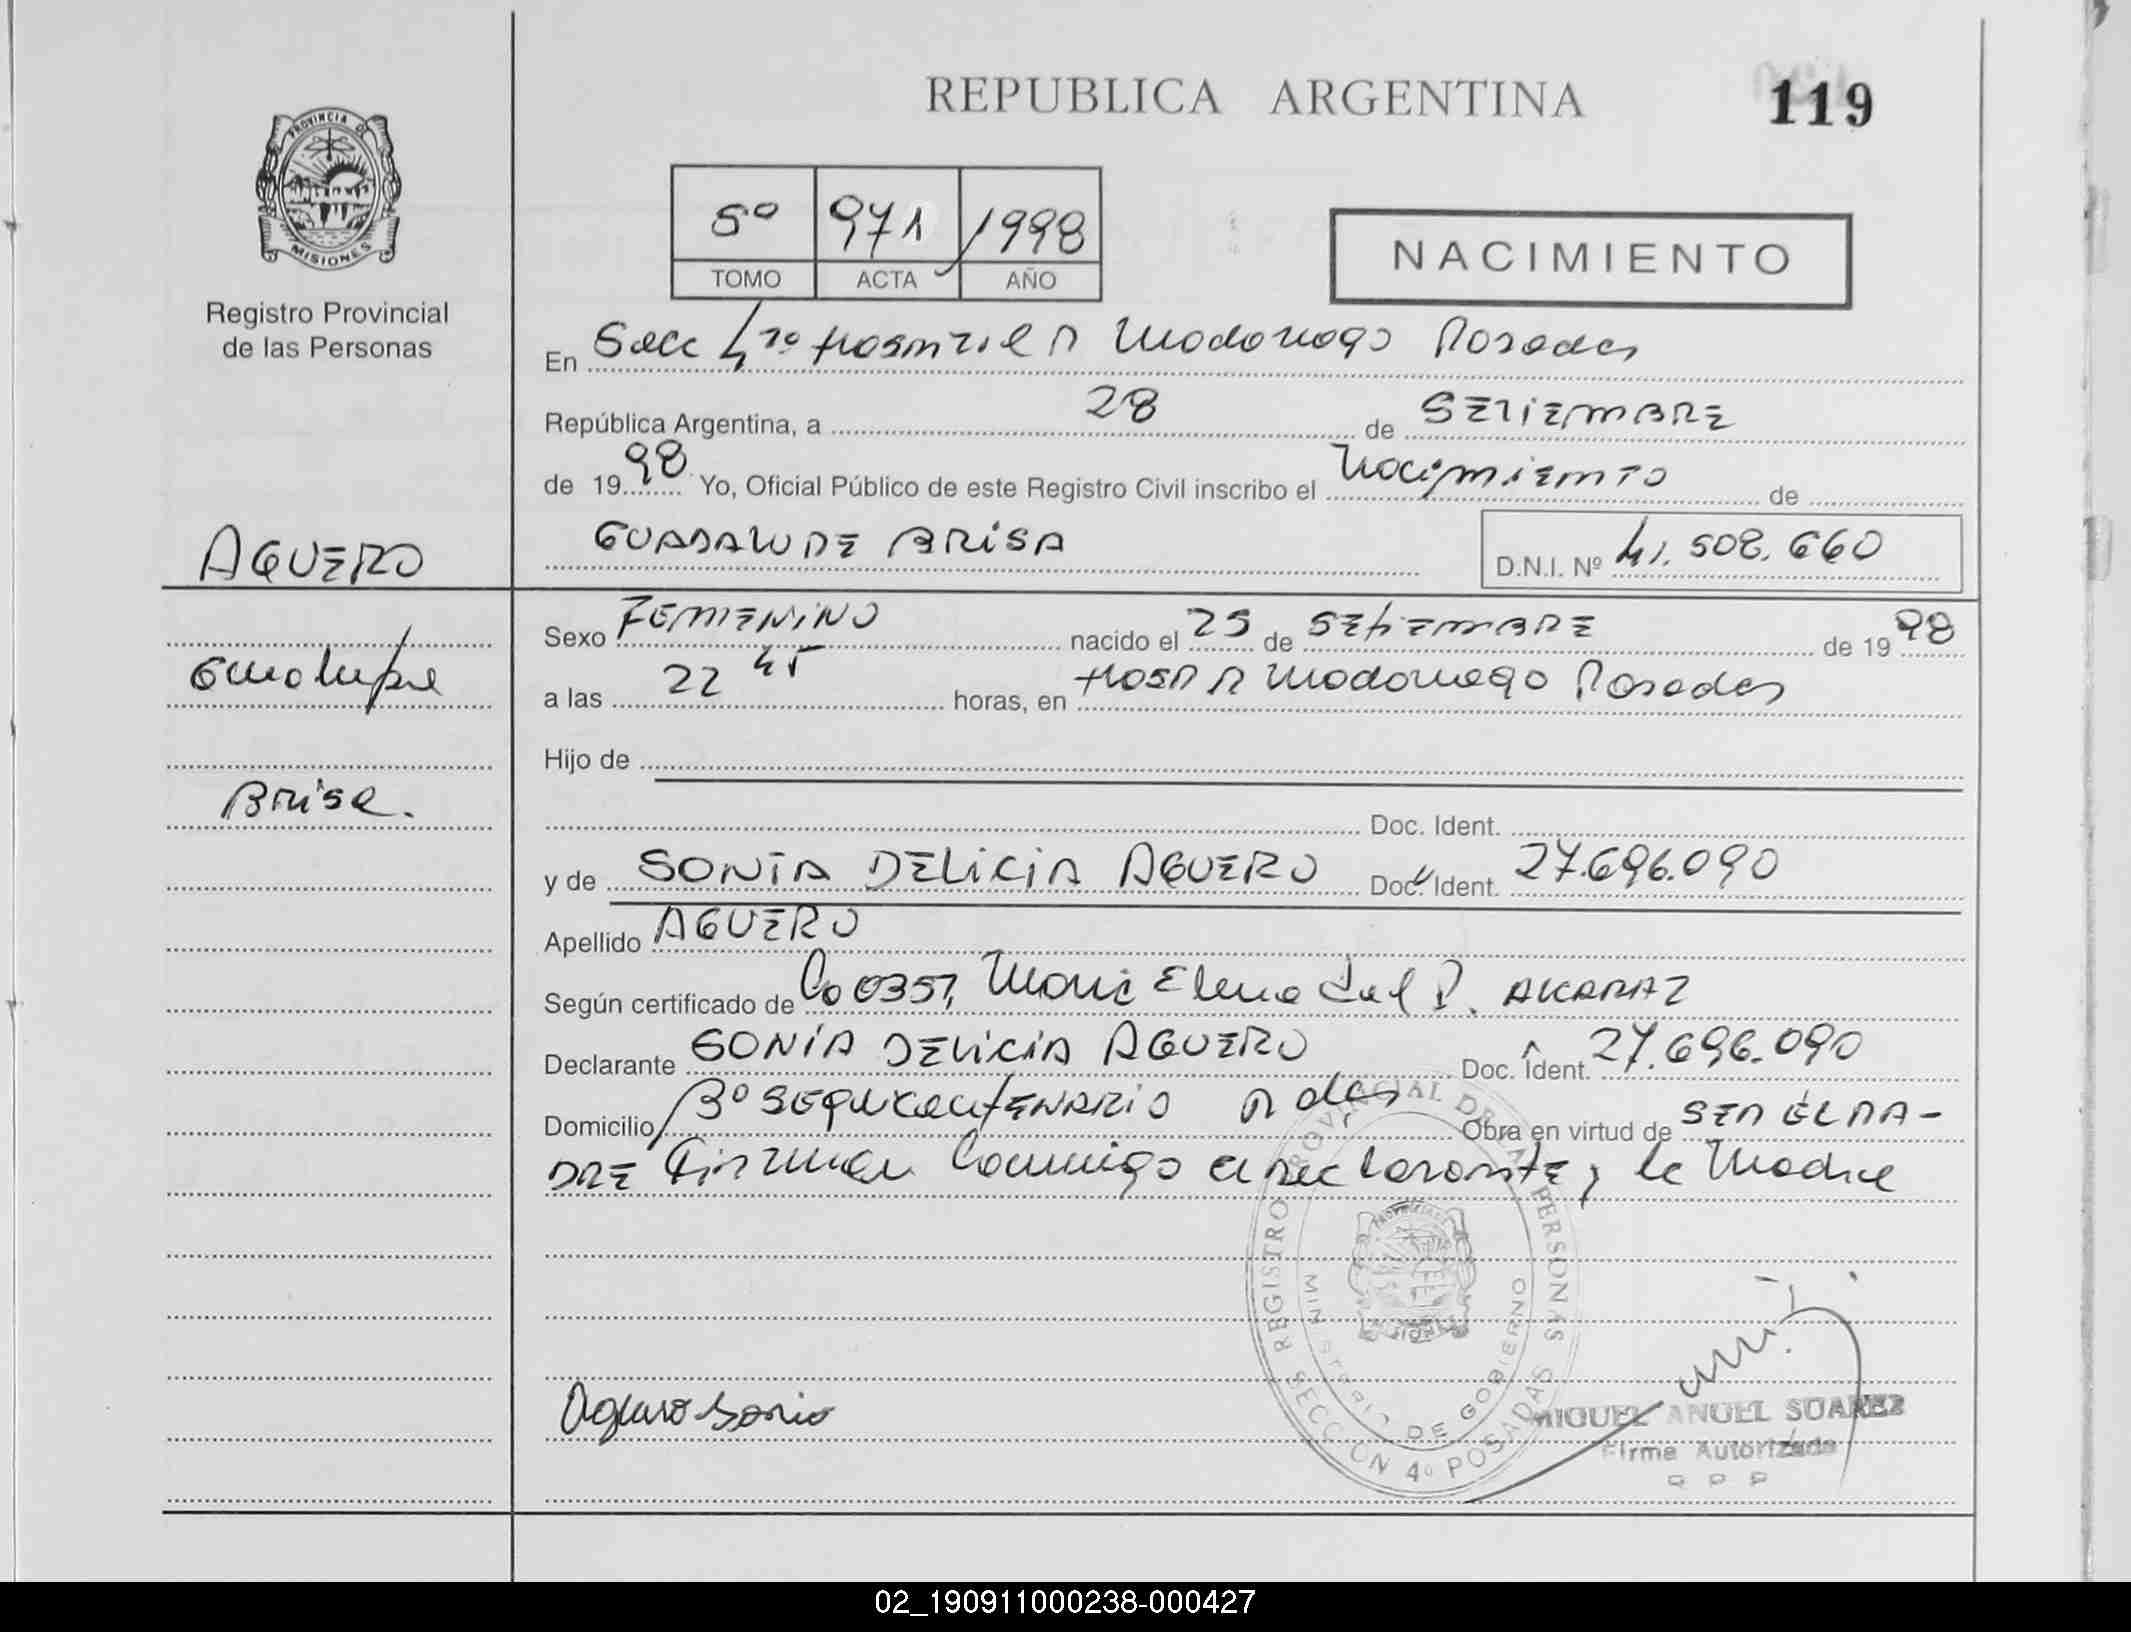 REPUBLICA ARGENTINA
119
PROVINCIA DE
MISIONES
Registro Provincial
de las Personas
5º 971 1998
TOMO ACTA AÑO
NACIMIENTO
En Secc 4ta Hospital R Madariaga Posadas
República Argentina, a 28 de SETIEMBRE
de 1998 Yo, Oficial Público de este Registro Civil inscribo el Nacimiento de
AGUERO
GUADALUPE BRISA
D.N.I. Nº 41.508.660
Sexo FEMENINO nacido el 25 de SETIEMBRE de 1998
Guadalupe
a las 22 45 horas, en Hosp R Madariaga Posadas
Hijo de
Brisa.
Doc. Ident.
y de SONIA DELICIA AGUERO Doc. Ident. 27.696.090
Apellido AGUERO
Según certificado de Co 0357, Maria Elena del P. ALCARAZ
Declarante SONIA DELICIA AGUERO Doc. Ident. 27.696.090
Domicilio Bº SEQUICENTENARIO Pdas Obra en virtud de SER ELLA LA MA-
DRE Firman Conmigo el declarante, la Madre
REGISTRO PROVINCIAL DE LAS PERSONAS
MINISTERIO DE GOBIERNO
SECCION 4º POSADAS
Aguero Sonia
MIGUEL ANGEL SUAREZ
Firma Autorizada
02_190911000238-000427